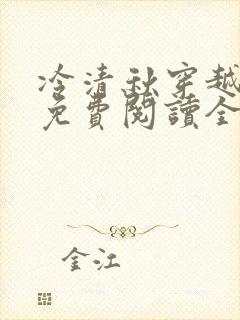 冷清秋穿越
免費閱讀全
金江